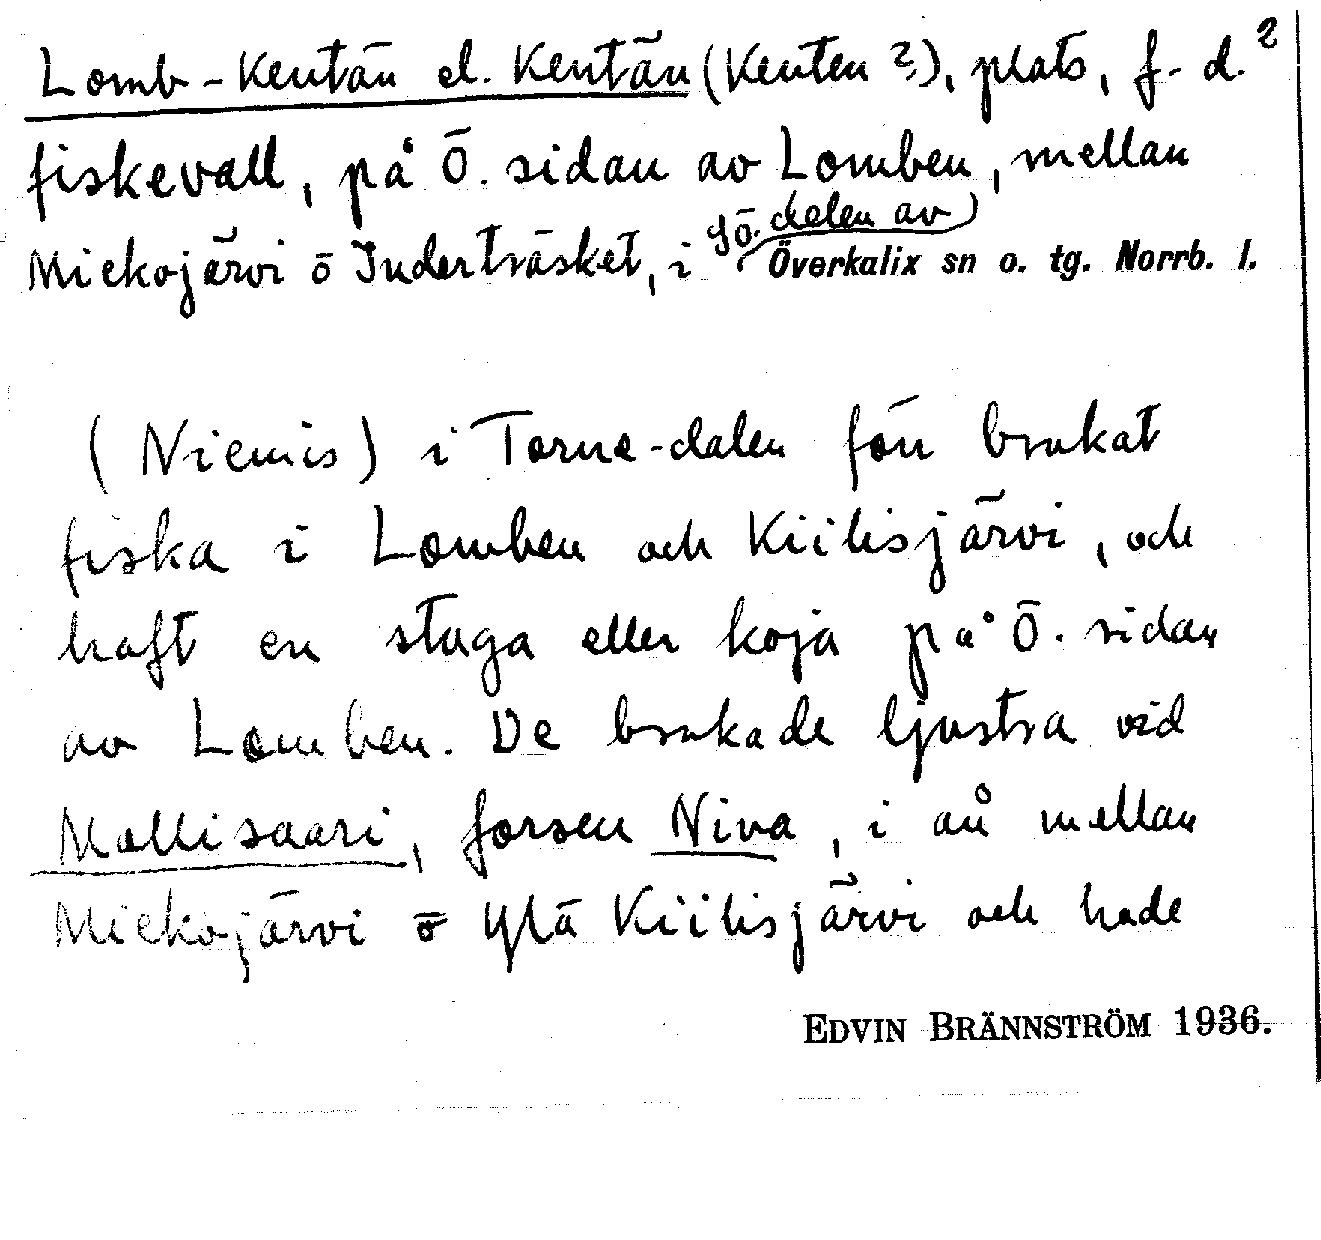 Lomb-Kentän el. Kentän (Kenten ?), plats, f.d. 2
fiskevall, på Ö. sidan av Lomben, mellan
Miekojärvi o Inderträsket, i Sö. delen av Överkalix sn o. tg. Norrb. l.
(Niemis) i Torne-dalen förr brukat
fiska i Lomben och Kiilisjärvi, och
haft en stuga eller koja på Ö. sidan
av Lomben. De brukade ljustra vid
Mallisaari, forsen Niva, i ån mellan
Miekojärvi o Ylä Kiilisjärvi och hade
EDVIN BRÄNNSTRÖM 1936.